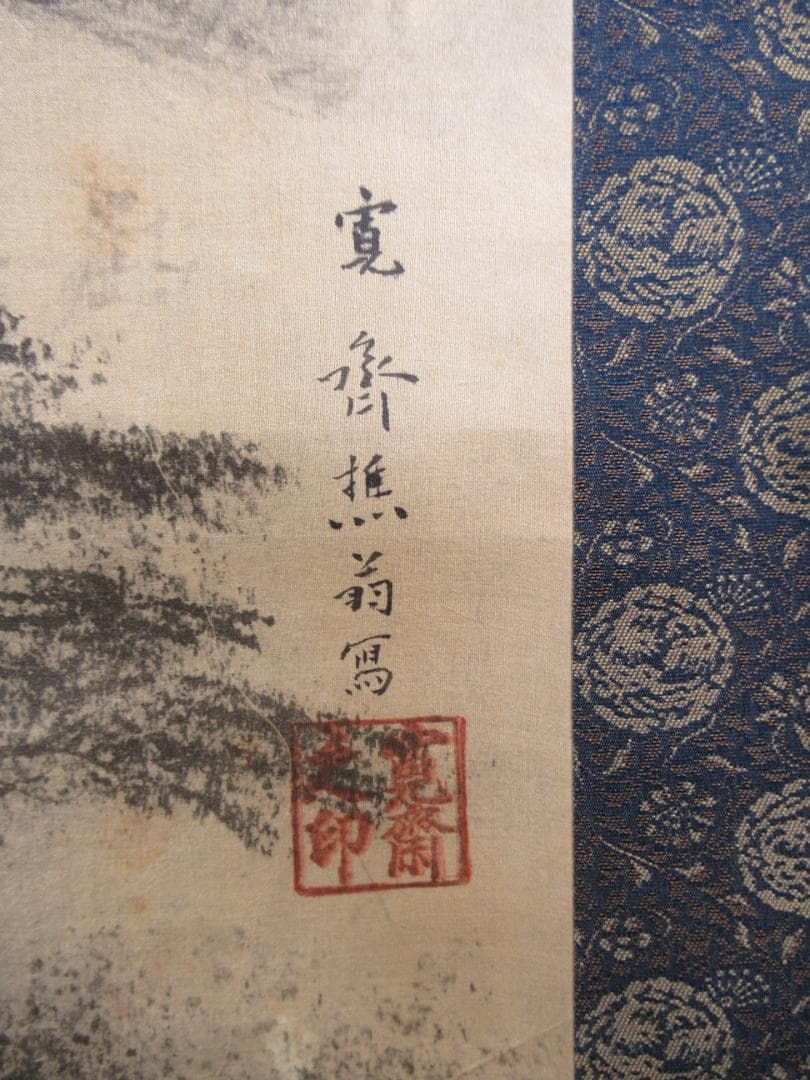 寛齊樵翁寫
寛齋之印